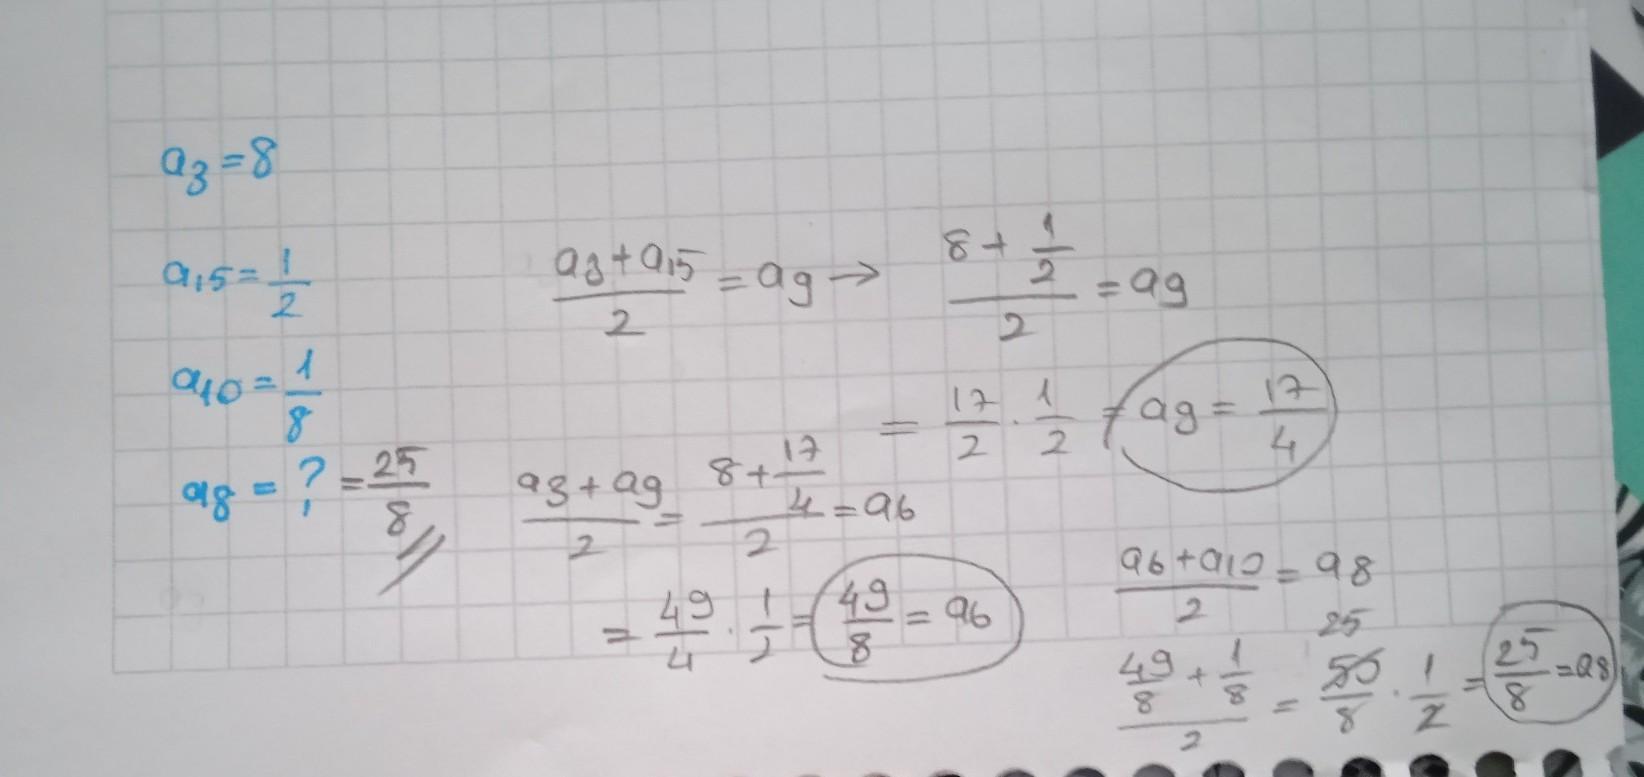 a3 = 8
a15 = 1/2
a10 = 1/8
a8 = ? = 25/8
(a3 + a15)/2 = a9 → (8 + 1/2)/2 = a9
= 17/2 · 1/2 = a9 = 17/4
(a3 + a9)/2 = (8 + 17/4)/2 = a6
= 49/4 · 1/2 = 49/8 = a6
(a6 + a10)/2 = a8
25
(49/8 + 1/8)/2 = 50/8 · 1/2 = 25/8 = a8